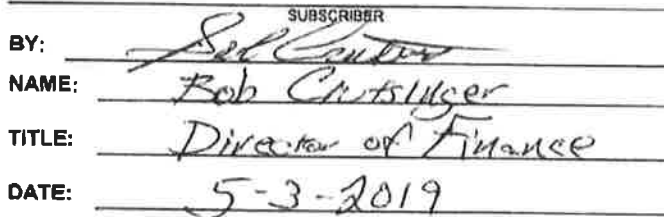 SUBSCRIBER
BY:
NAME: Bob Cutsinger
TITLE: Director of Finance
DATE: 5-3-2019